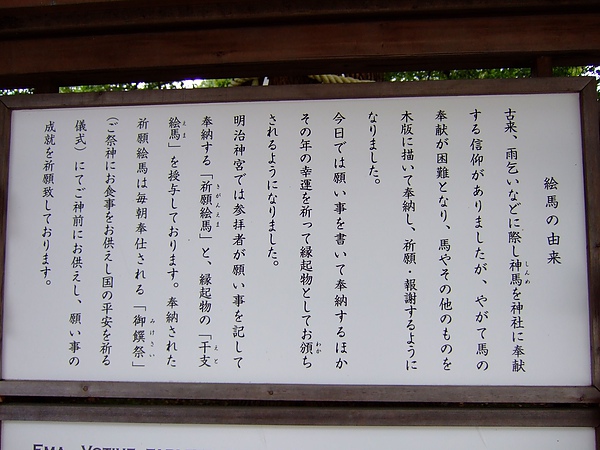 絵馬の由来
古来、雨乞いなどに際し神馬を神社に奉献
しんめ
する信仰がありましたが、やがて馬の
奉献が困難となり、馬やその他のものを
木版に描いて奉納し、祈願・報謝するように
なりました。
今日では願い事を書いて奉納するほか
その年の幸運を祈って縁起物としてお頒ち
わか
されるようになりました。
明治神宮では参拝者が願い事を記して
奉納する「祈願絵馬」と、縁起物の「干支
きがんえま
えと
絵馬」を授与しております。奉納された
えま
祈願絵馬は毎朝奉仕される「御饌祭」
みけさい
(ご祭神にお食事をお供えし国の平安を祈る
儀式)にてご神前にお供えし、願い事の
成就を祈願致しております。
EMA VOTIVE